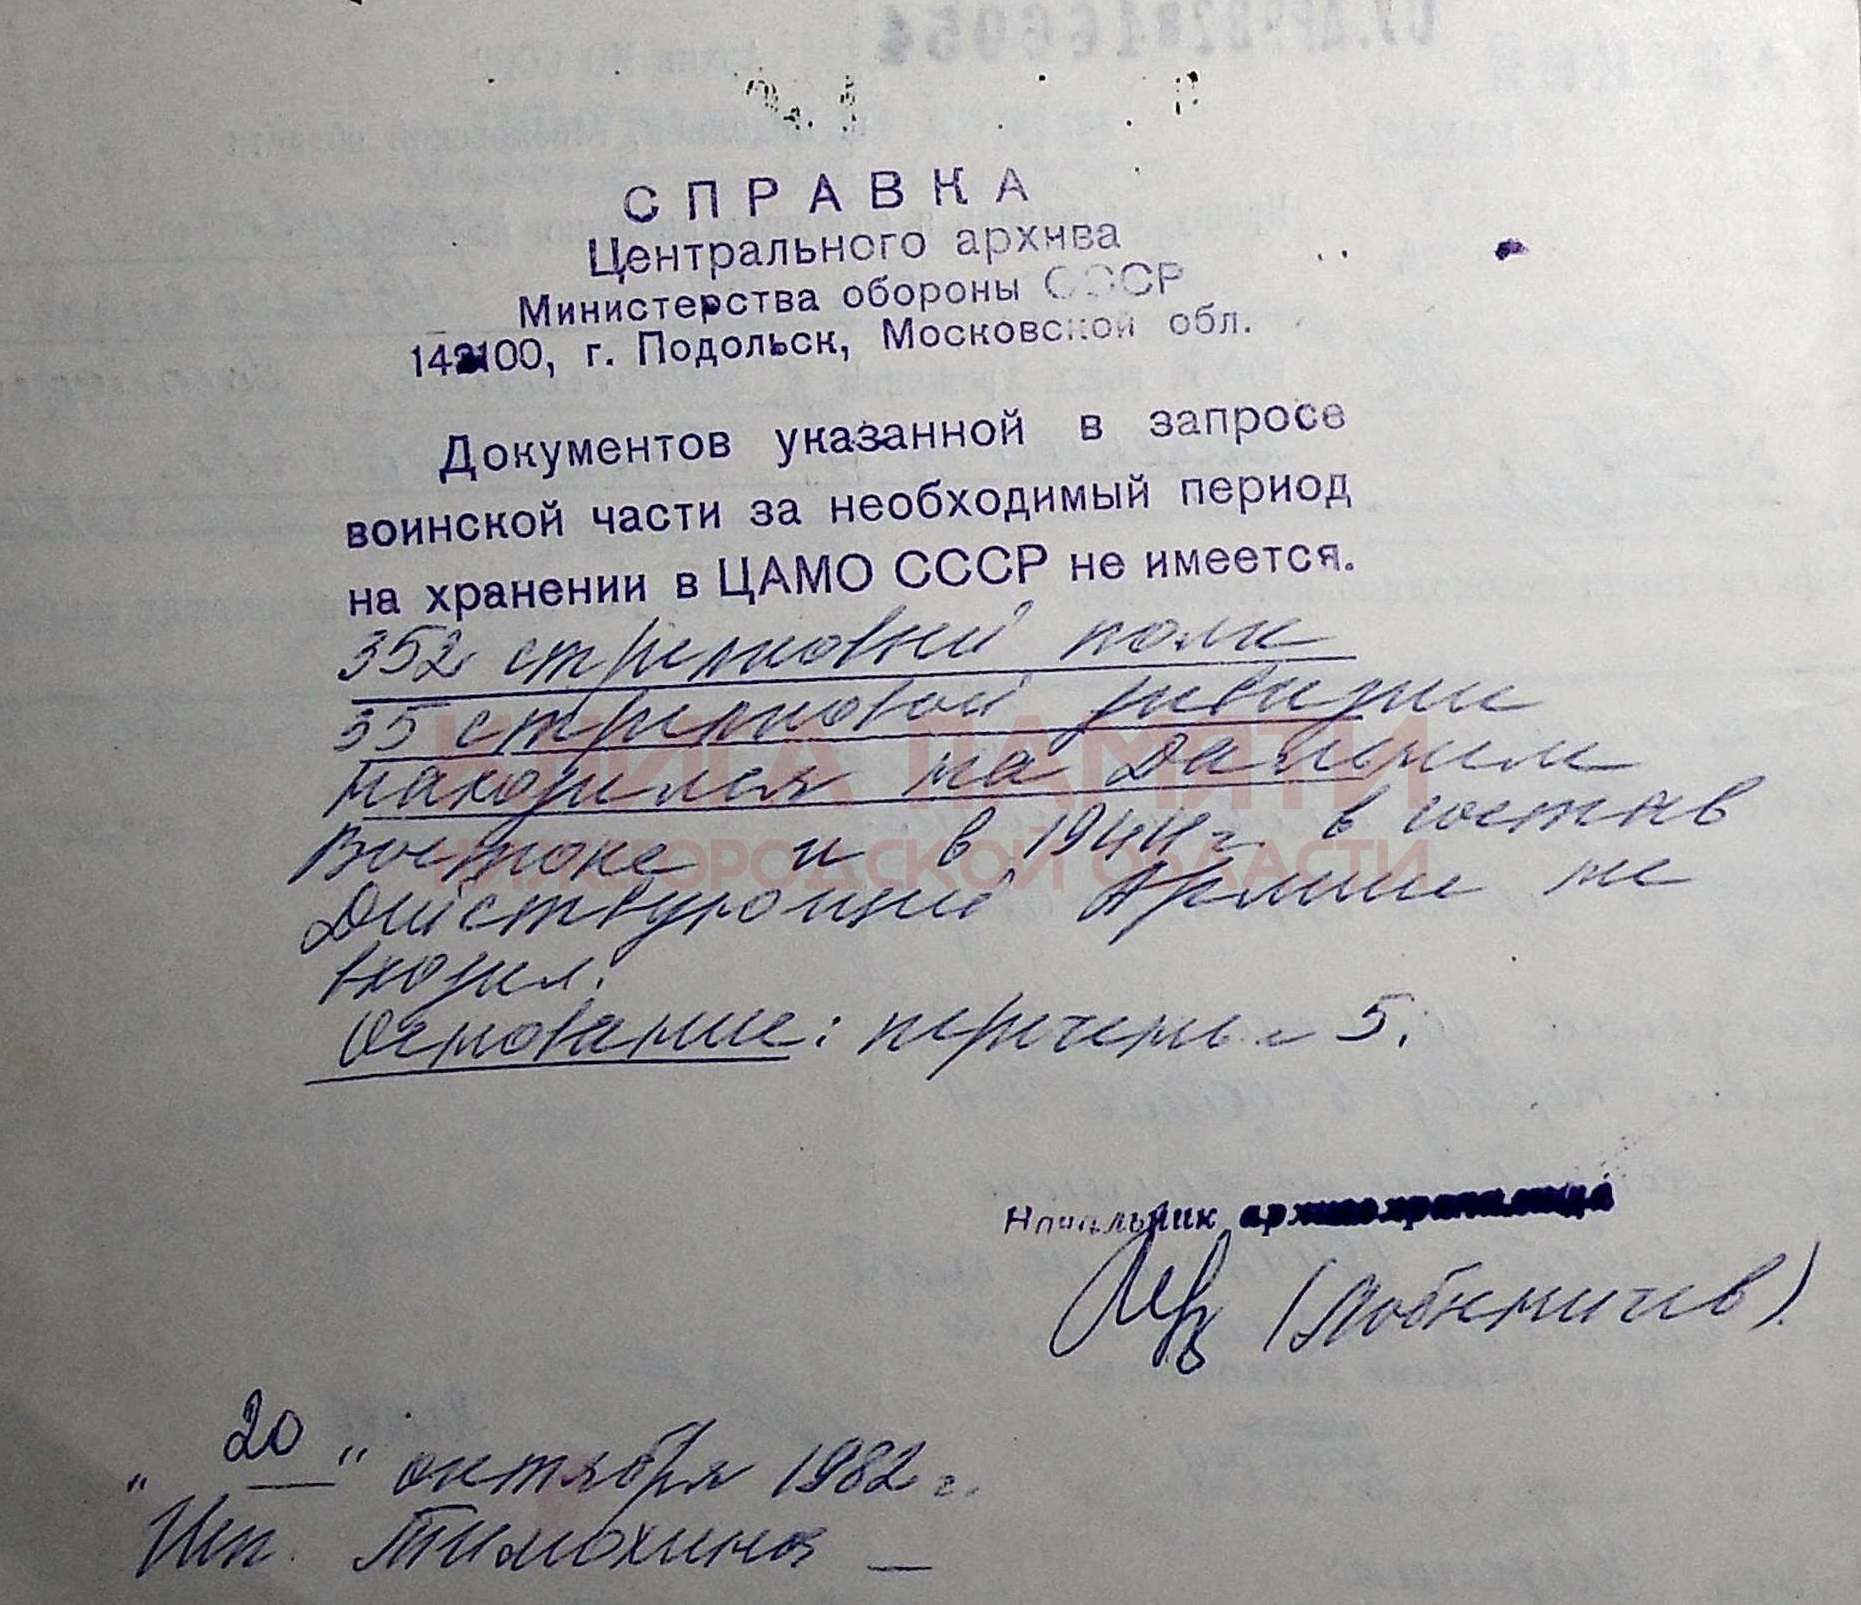 СПРАВКА
Центрального архива
Министерства обороны СССР
142100, г. Подольск, Московской обл.
Документов указанной в запросе
воинской части за необходимый период
на хранении в ЦАМО СССР не имеется.
352 стрелковый полк
35 стрелковой дивизии
находился на Дальнем
Востоке и в 1944 г. в состав
Действующей Армии не
входил.
Основание: перечень 5.
Начальник архивохранилища
20 " октября 1982 г.
Исп. Тимохина
КНИГА ПАМЯТИ
НИЖЕГОРОДСКОЙ ОБЛАСТИ